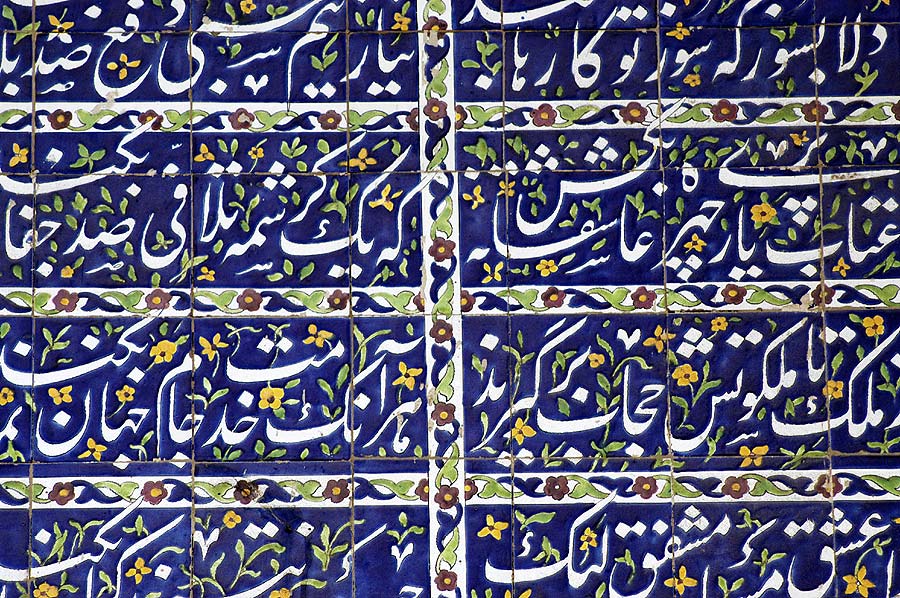 دلا بسوز که سوز تو کارها بکند
نیاز نیم شبی دفع صد بلا
عتاب یار پری چهره عاشقانه بکش
که یک کرشمه تلافی صد جفا بکند
ملک تا ملکوتش حجاب برگیرند
هر آنکه خدمت جام جهان بکند
عشق مشفق لیک
بکند